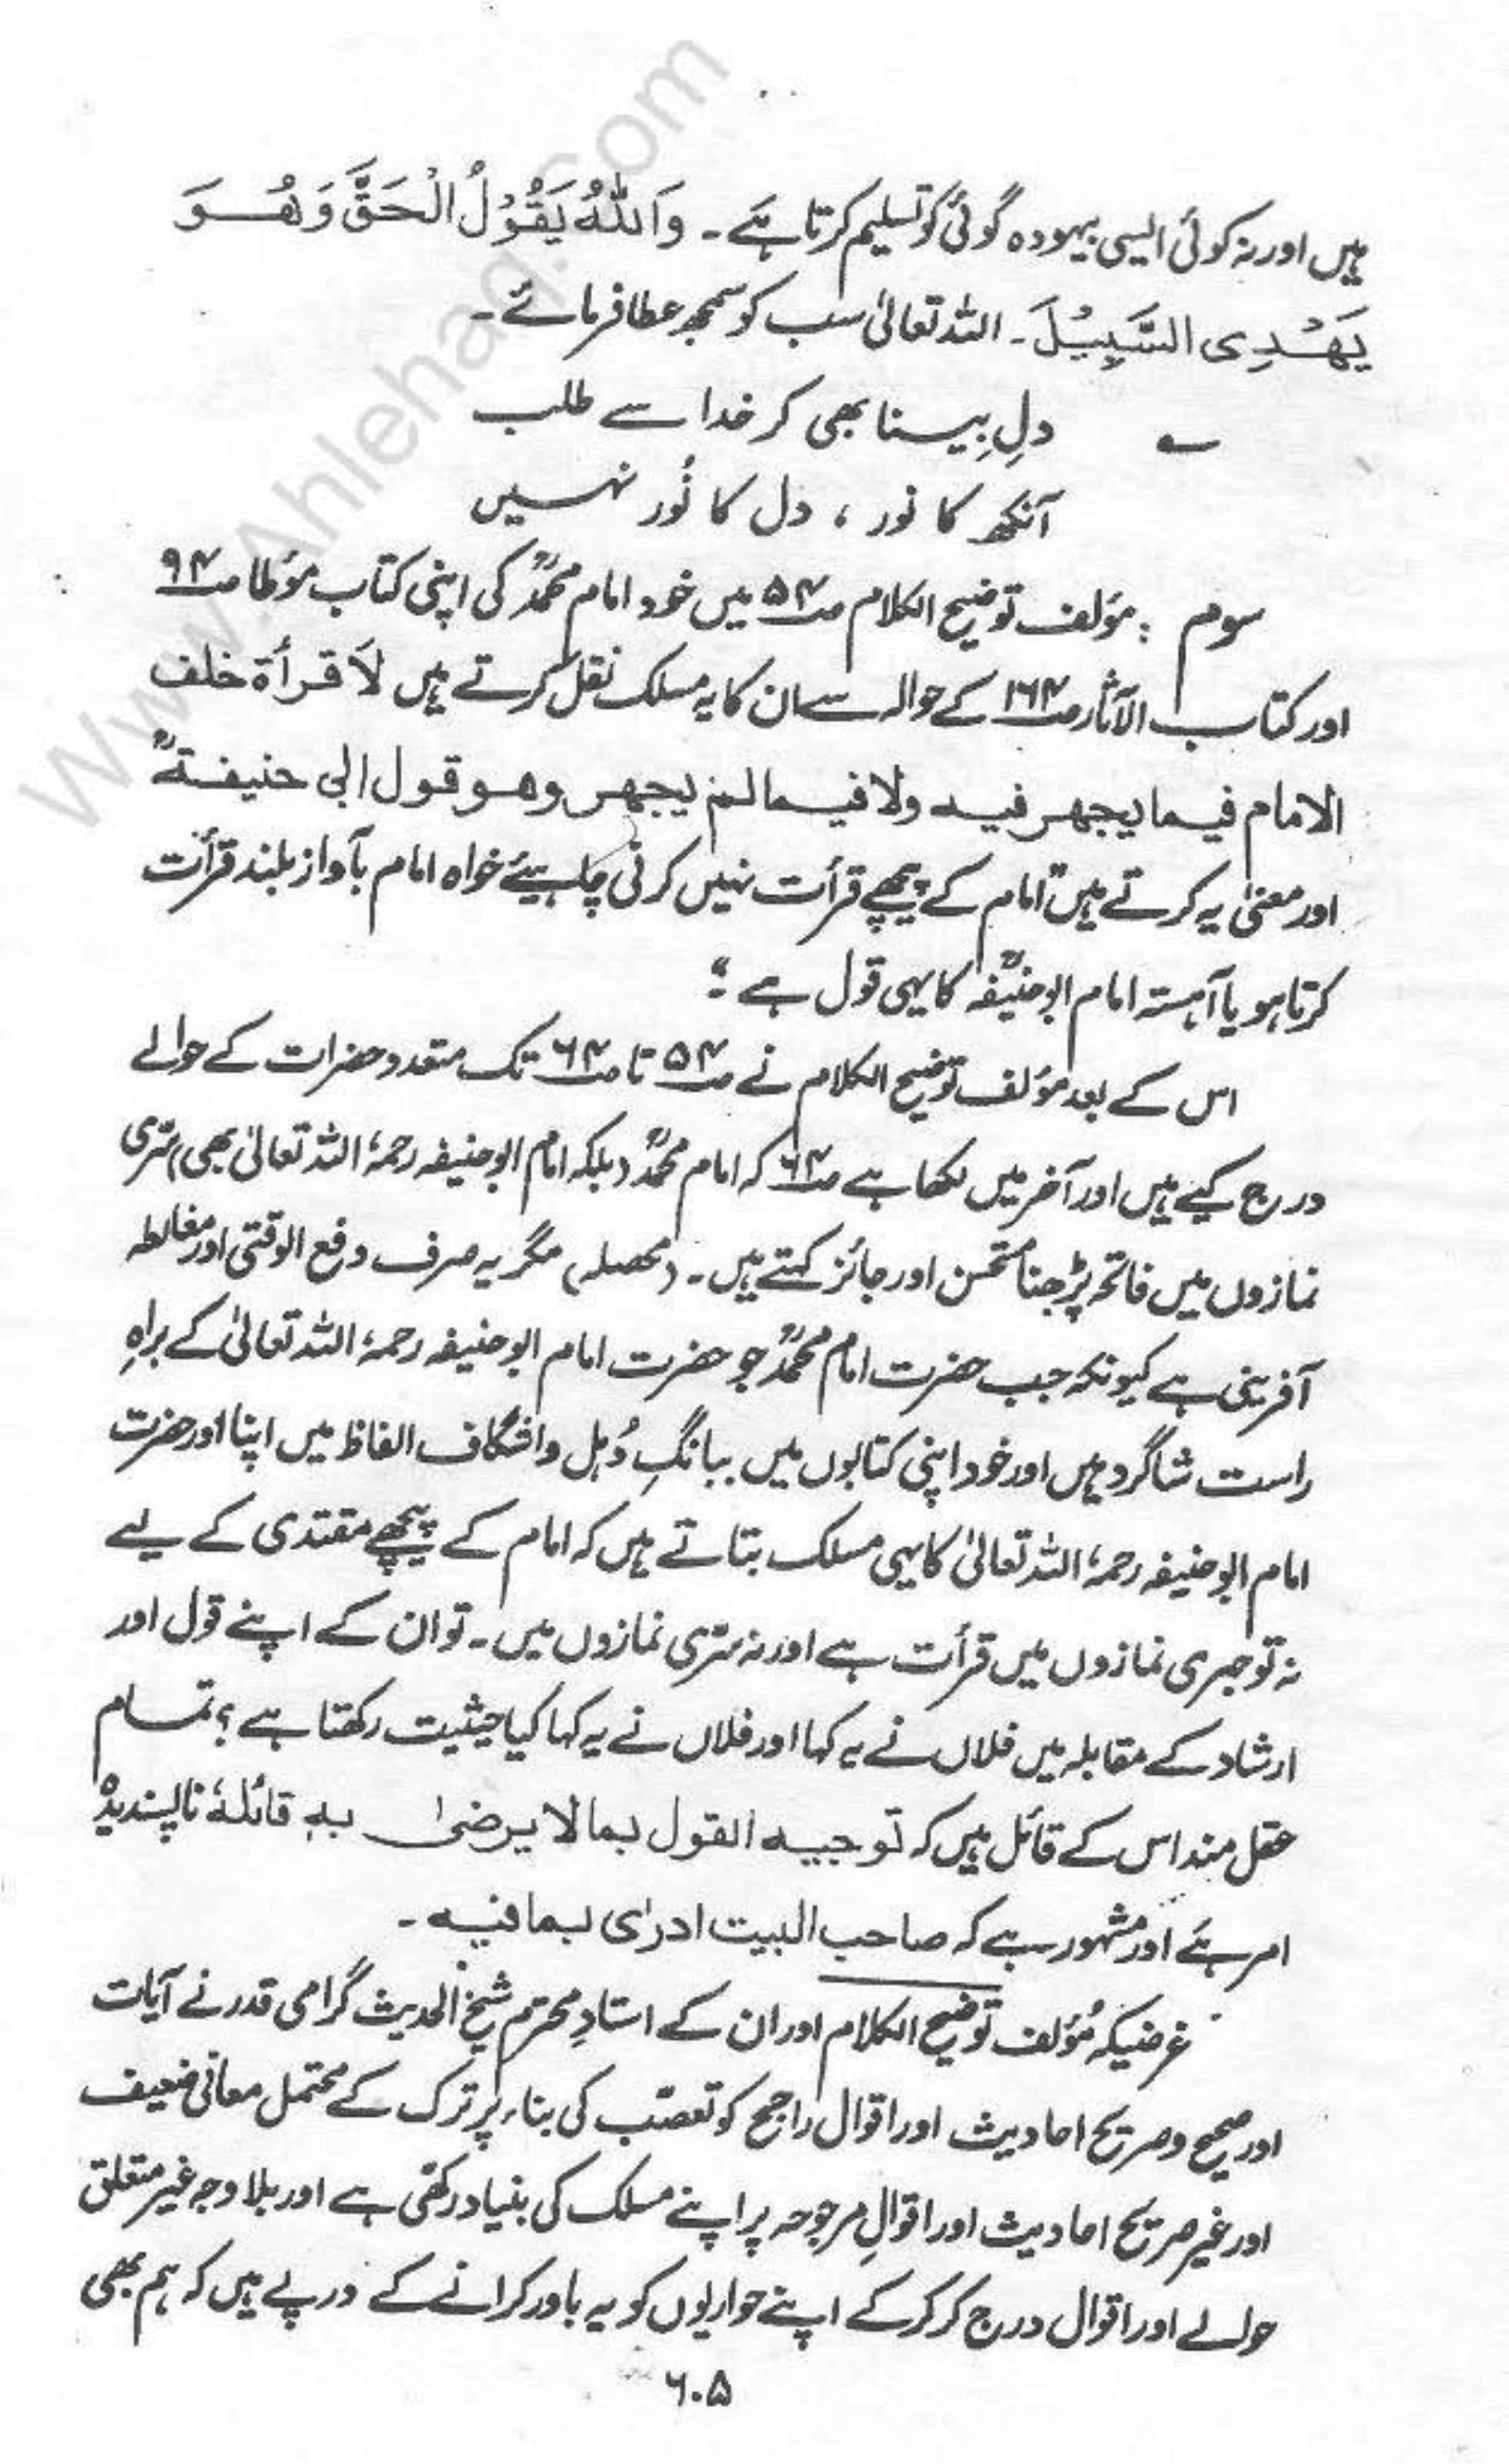 ہیں اور نہ کوئی ایسی بیہودہ گوئی کو تسلیم کرتا ہے۔ وَاللّٰهُ يَقُوْلُ الْحَقَّ وَهُوَ
يَهْدِى السَّبِيْلَ۔ اللہ تعالیٰ سب کو سمجھ عطا فرمائے۔
؎ دلِ بِینا بھی کر خدا سے طلب
آنکھ کا نور ، دل کا نُور نہیں
سوم : مؤلف توضیح الکلام صـ۵۴ میں خود امام محمدؒ کی اپنی کتاب مؤطا صـ۹۴
اور کتاب الآثار صـ۱۶۴ کے حوالہ سے ان کا یہ مسلک نقل کرتے ہیں لاَ قرأۃ خلف
الامام فیما یجھر فیہ ولا فیما لم یجھر وھو قول ابی حنیفۃؒ
اور معنیٰ یہ کرتے ہیں "امام کے پیچھے قرأت نہیں کرنی چاہیئے خواہ امام بآواز بلند قرأت
کرتا ہو یا آہستہ امام ابوحنیفہؒ کا یہی قول ہے"۔
اس کے بعد مؤلف توضیح الکلام نے صـ۵۴ تا صـ۶۴ تک متعدد حضرات کے حوالے
درج کیے ہیں اور آخر میں لکھا ہے صـ۶۴ کہ امام محمدؒ (بلکہ امام ابوحنیفہ رحمہُ اللہ تعالیٰ بھی) سّری
نمازوں میں فاتحہ پڑھنا مستحسن اور جائز کہتے ہیں۔ (محصلہ) مگر یہ صرف دفع الوقتی اور مغالطہ
آفرینی ہے کیونکہ جب حضرت امام محمدؒ جو حضرت امام ابوحنیفہ رحمہُ اللہ تعالیٰ کے براہِ
راست شاگرد ہیں اور خود اپنی کتابوں میں ببانگِ دُہل واشگاف الفاظ میں اپنا اور حضرت
امام ابوحنیفہ رحمہُ اللہ تعالیٰ کا یہی مسلک بتاتے ہیں کہ امام کے پیچھے مقتدی کے لیے
نہ تو جہری نمازوں میں قرأت ہے اور نہ سّری نمازوں میں۔ تو ان کے اپنے قول اور
ارشاد کے مقابلہ میں فلاں نے یہ کہا اور فلاں نے یہ کہا کیا حیثیت رکھتا ہے ؟ تمام
عقل مند اس کے قائل ہیں کہ توجیہ القول بما لا یرضیٰ بہٖ قائلہٗ ناپسندیدہ
امر ہے اور مشہور ہے کہ صاحب البیت ادرٰی بما فیہ۔
غرضیکہ مُؤلف توضیح الکلام اور ان کے استادِ محترم شیخ الحدیث گرامی قدر نے آیات
اور صحیح و صریح احادیث اور اقوالِ راجح کو تعصّب کی بناء پر ترک کے محتمل معانی ضعیف
اور غیر صریح احادیث اور اقوالِ مرجوحہ پر اپنے مسلک کی بنیاد رکھی ہے اور بلا وجہ غیر متعلق
حوالے اور اقوال درج کر کر کے اپنے حواریوں کو یہ باور کرانے کے درپے ہیں کہ ہم بھی
۶۰۵
www.Ahlehaq.Com